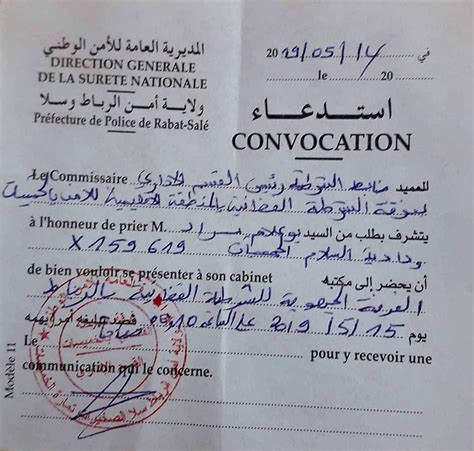 المديرية العامة للأمن الوطني
DIRECTION GENERALE
DE LA SURETE NATIONALE
ولاية أمن الرباط وسلا
Préfecture de Police de Rabat-Salé
في 14/05/2019
le 20
استدعاء
CONVOCATION
Le Commissaire ضابط الشرطة رئيس القسم العميد
بفرقة الشرطة القضائية بالمنطقة الإقليمية للأمن بالخميسات
à l'honneur de prier M. يتشرف بطلب من السيد بوعلام مراد
السلام الخميسات X159619
de bien vouloir se présenter à son cabinet أن يحضر إلى مكتبه
الفرقة الجهوية للشرطة القضائية بالرباط
يوم 15/5/2019 على الساعة 10
Le صباحا pour y recevoir une
communication qui le concerne.
Modèle 11